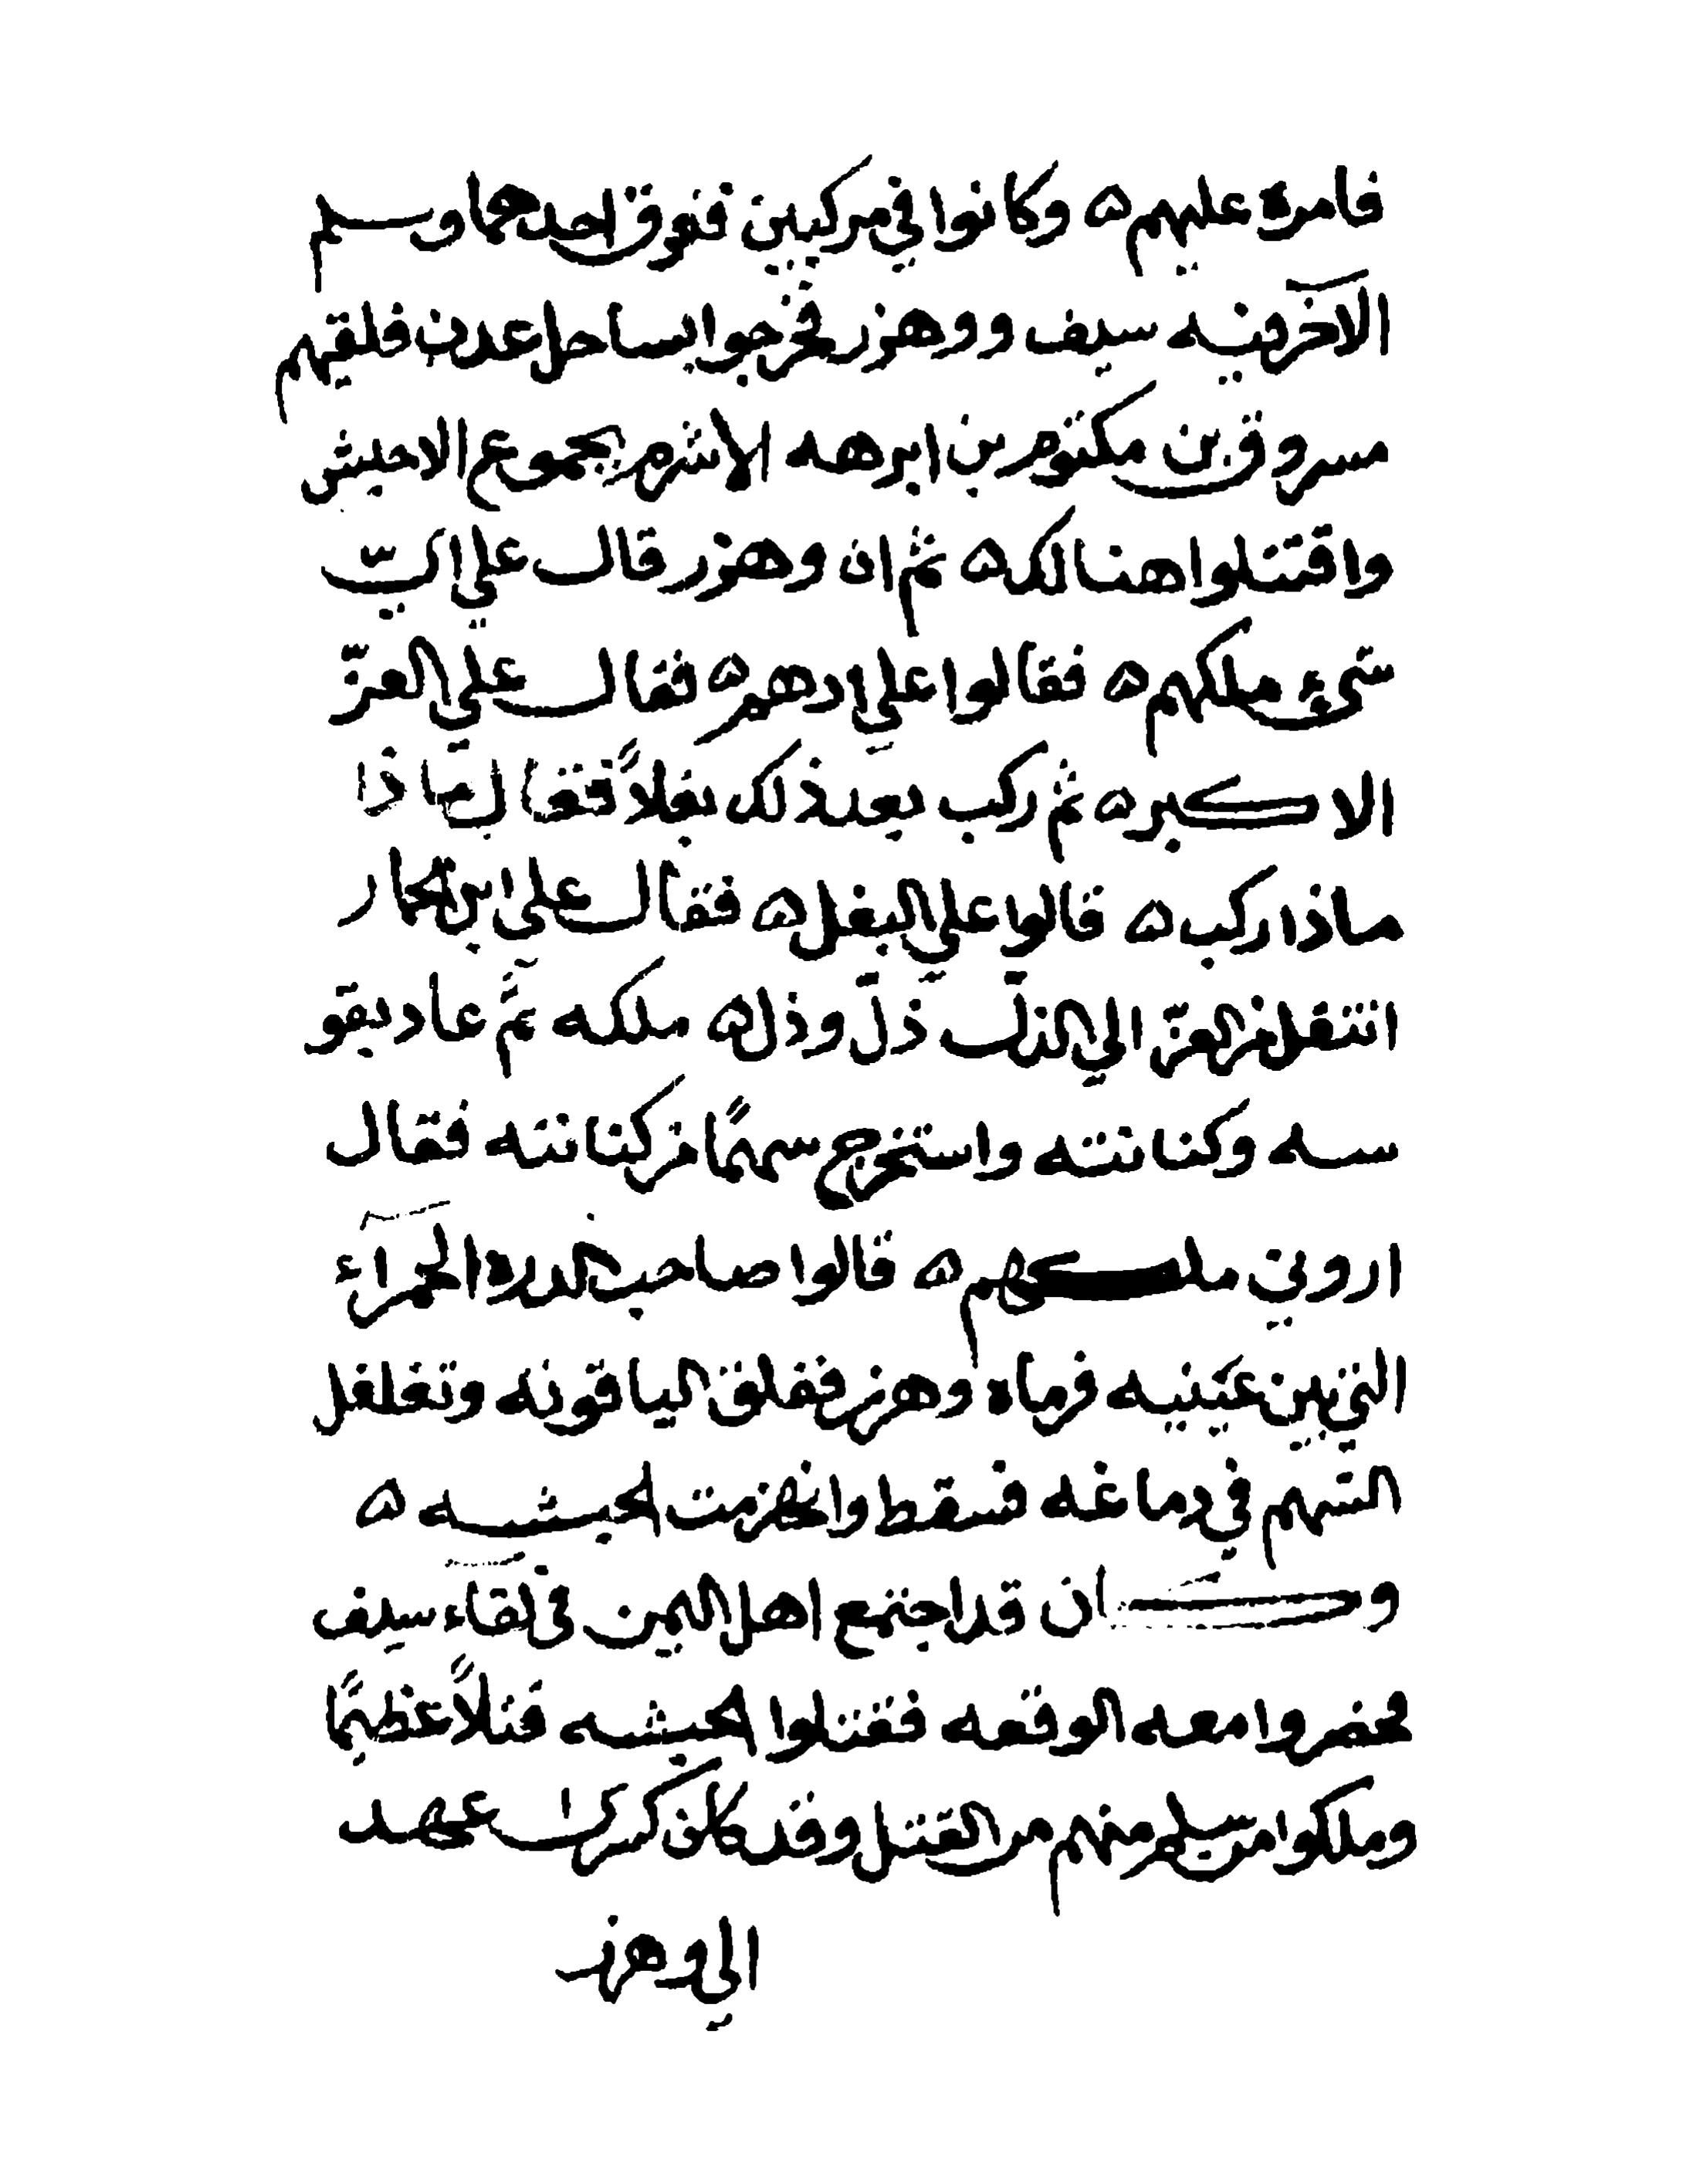 فامره عليهم ه وكانوا في مركبين فغرق احدهما وسلم
الآخر فيه سيف ووهزر فخرجوا بساحل عدن فلقيهم
مسروق بن مكتوم بن ابرهه الاشرم بجموع الاحبش
واقتتلوا هنالك ه ثم ان وهزر قال على ايّ
شيء ملكهم ه فقالوا على ادهم ه فقال على العزّ
الاكبر ه ثم ركب بعد ذلك بغلاً فقال ماذا
ماذا ركب ه قالوا على البغل ه فقال على ابن الحمار
انتقل من العزّ الي الذلّ ذلّ وذل ه ملكه ثم عاد بقو
سه وكنانته واستخرج سهمًا من كنانته فقال
اروني ملكهم ه قالوا صاحب الدره الحمرآء
التي بين عينيه فرماه وهزر ففلق الياقوته وتغلغل
السّهم في دماغه فسقط وانهزمت الحبشه ه
وكان قد اجتمع اهل اليمن في لقآء سيف
فحضروا معه الوقعه فقتلوا الحبشه قتلاً عظيمًا
وملكوا من سلم منهم من القتل وقد كان كسرى عهد
الي وهزر